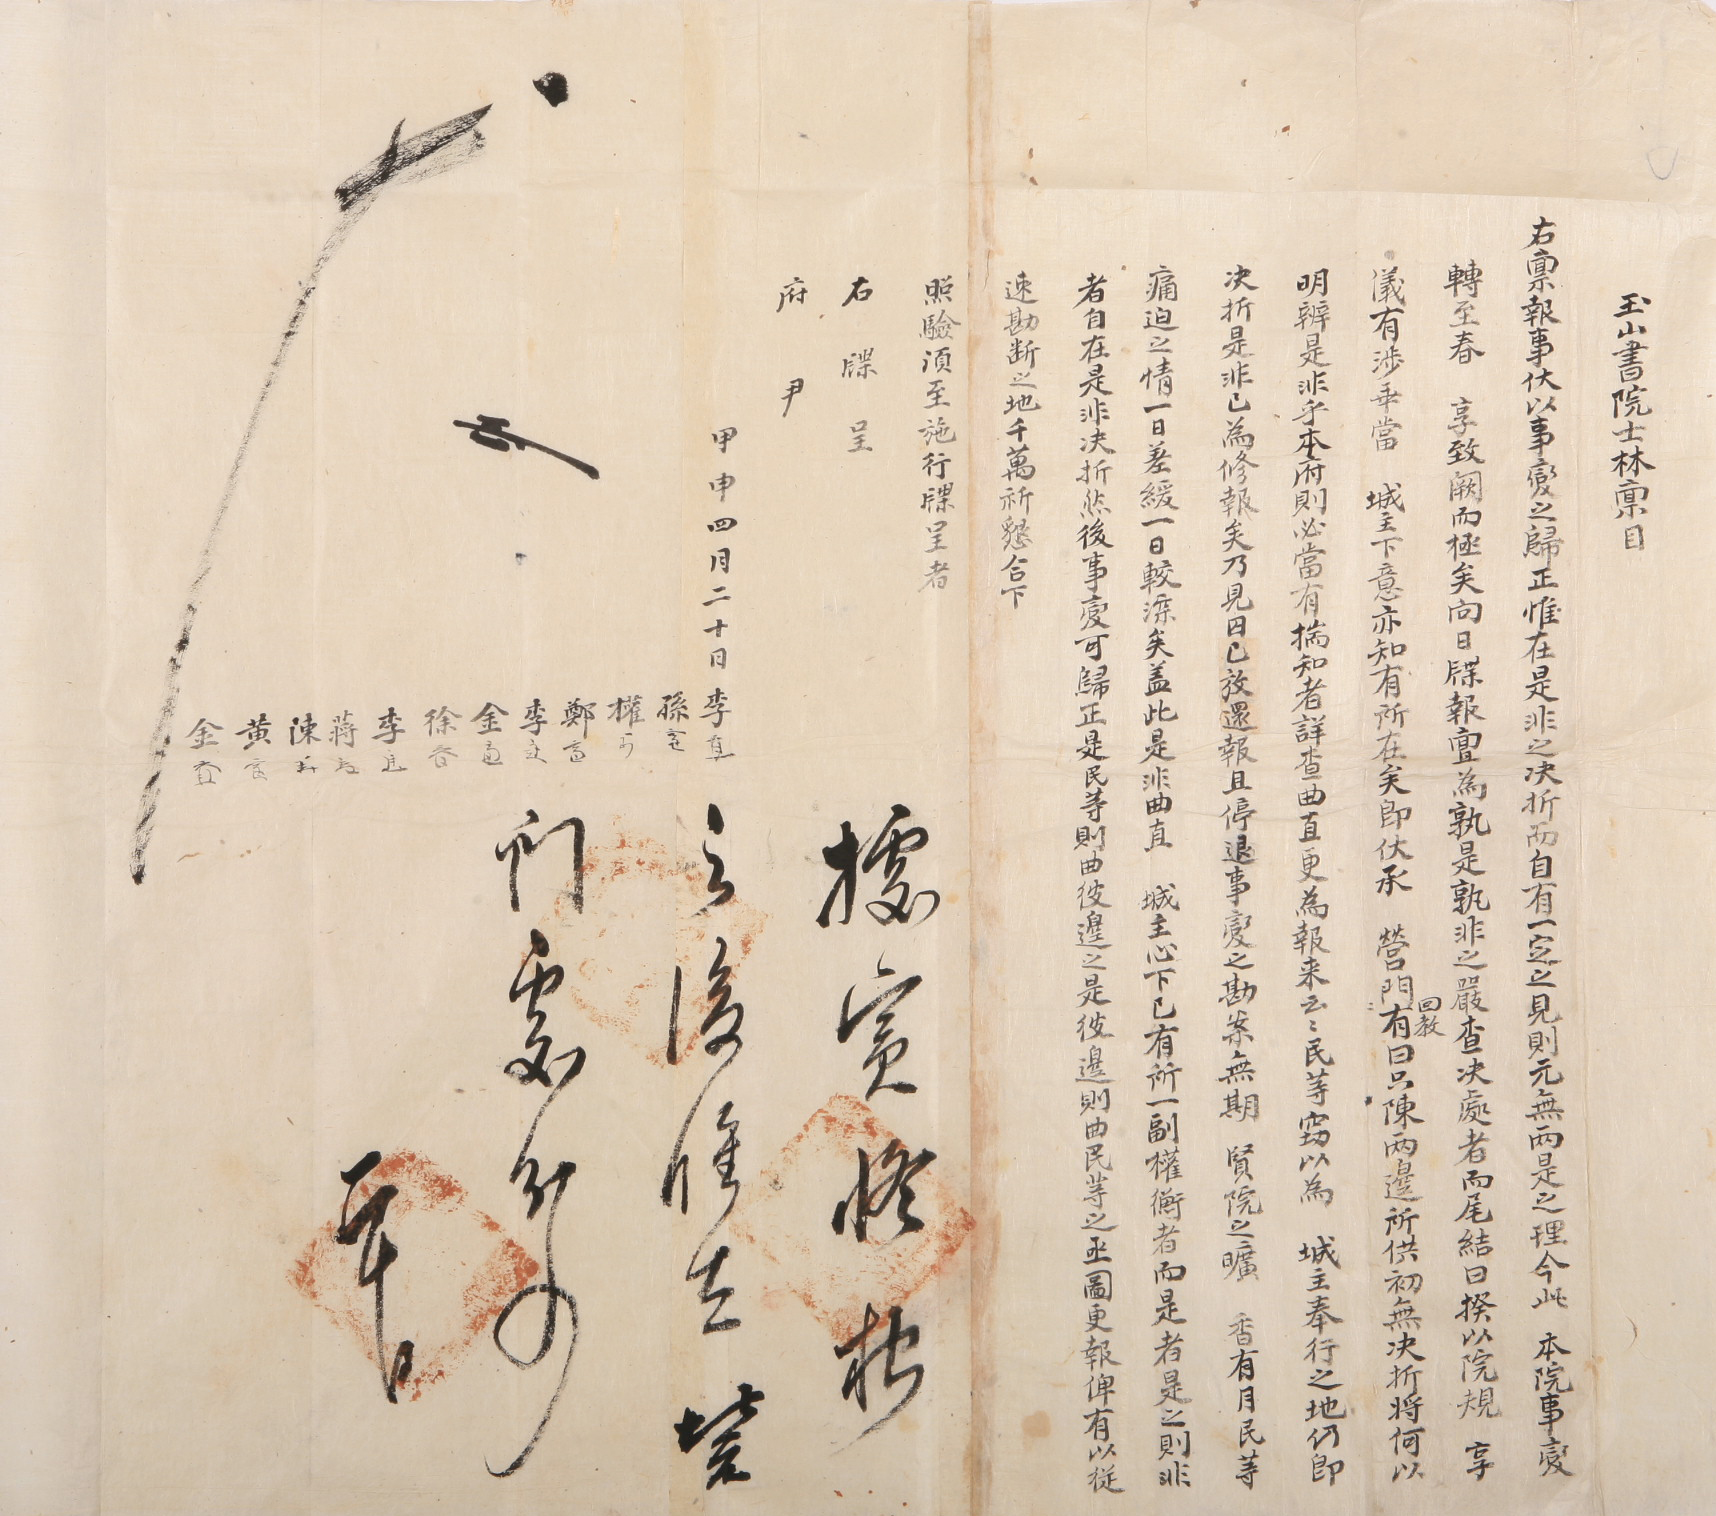 玉山書院士林稟目
右稟報事伏以事變之歸正惟在是非之決折而自有一定之見則元無兩是之理今此 本院事變
轉至春 享致闕而極矣向日牒報寔為孰是孰非之嚴查決處者而尾結曰揆以院規 享
儀有涉乖當 城主下意亦知有所在矣即伏承 營門回教有曰只陳兩邊所供初無決折將何以
明辨是非乎本府則必當有揣知者詳查曲直更為報来云云民等竊以為 城主奉行之地仍即
決折是非已為修報矣乃見囚已放還報且停退事變之勘案無期 賢院之曠 香有月民等
痛迫之情一日差緩一日較深矣盖此是非曲直 城主心下已有所一副權衡者而是者是之則非
者自在是非決折然後事變可歸正是民等則曲彼邊之是彼邊則曲民等之亟圖更報俾有以從
速勘斷之地千萬祈懇合下
照驗湏至施行牒呈者
右牒呈
府尹
甲申四月二十日李
孫
權
鄭
李
金
徐
李
蔣
陳
黃
金
據實修報
之後惟在營
門處分